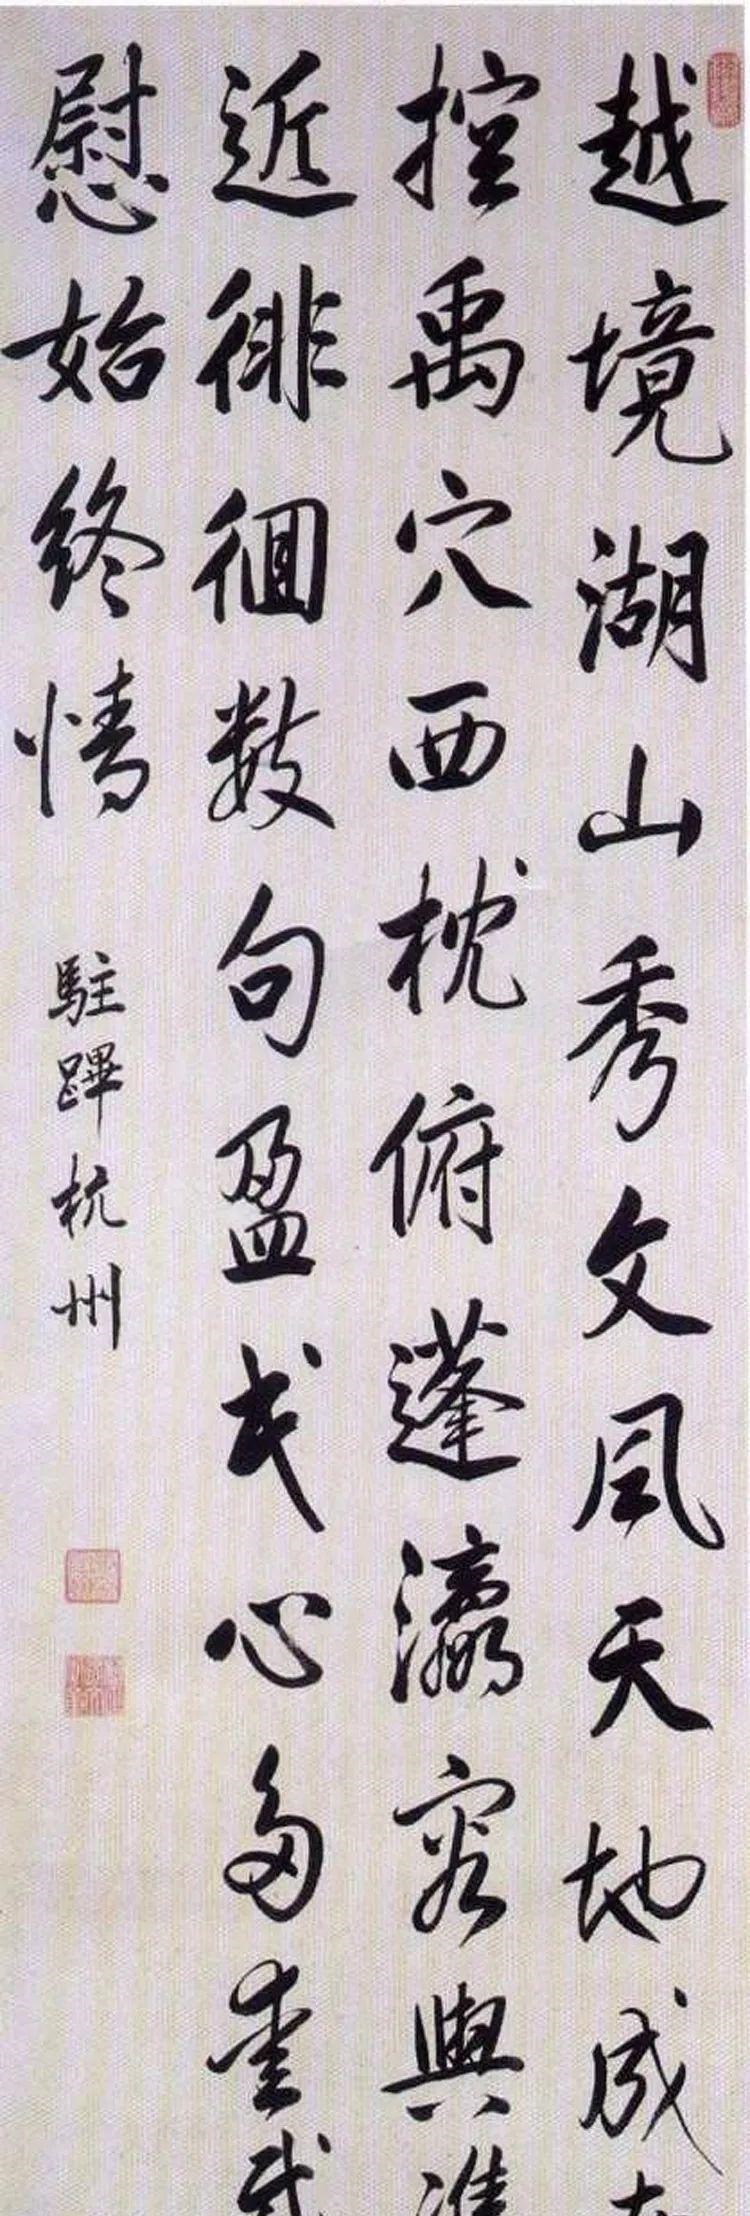 越境湖山秀文風天地成
控禹穴西枕俯蓬瀛容與
近徘徊數句盈民心多愛戴
慰始終情
駐蹕杭州